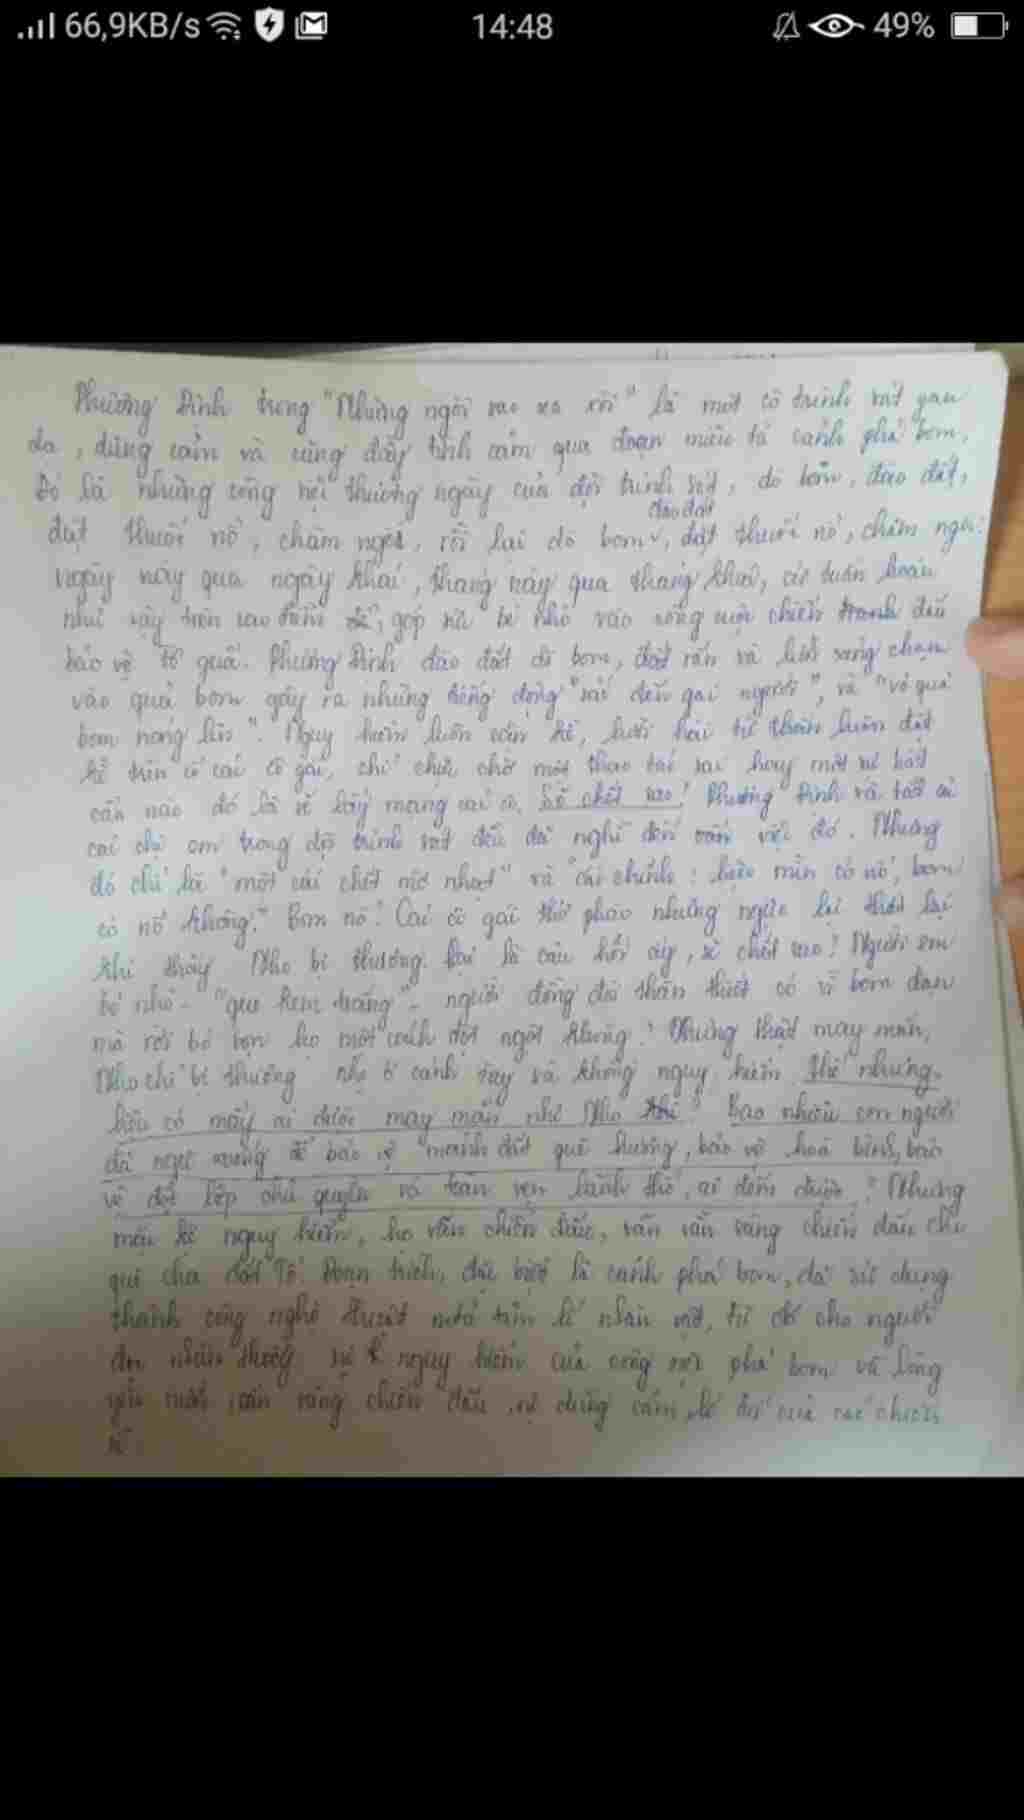 66,9KB/s 14:48 49%
Phương Định trong "Những ngôi sao xa xôi" là một cô trinh sát gan
dạ, dũng cảm và cũng đầy tình cảm qua đoạn miêu tả cảnh phá bom.
Đó là những công việc thường ngày của đội trinh sát, dò bom, đào đất,
đào đất
đặt thuốc nổ, châm ngòi, rồi lại dò bom, đặt thuốc nổ, châm ngòi.
ngày này qua ngày khác, tháng này qua tháng khác, cứ tuần hoàn
như vậy trên cao điểm, góp sức bé nhỏ vào công cuộc chiến tranh đấu
bảo vệ tổ quốc. Phương Định đào đất dò bom, đất rắn và lưỡi xẻng chạm
vào quả bom gây ra những tiếng động "sắc đến gai người", và "vỏ quả
bom nóng lên". Nguy hiểm luôn cận kề, lưỡi hái tử thần luôn đặt
kề trên cổ các cô gái, chỉ chực chờ một thao tác sai hay một sự bất
cẩn nào đó là sẽ lấy mạng các cô. Sẽ chết sao! Phương Định và tất cả
các chị em trong đội trinh sát đều đã nghĩ đến việc đó. Nhưng
đó chỉ là "một cái chết mờ nhạt" và "cái chính: liệu mìn có nổ, bom
có nổ không?" Bom nổ! Các cô gái thở phào nhưng ngực lại thắt lại
khi thấy Nho bị thương. Lại là câu hỏi ấy, sẽ chết sao! Người em
bé nhỏ - "que kem trắng" - người đồng đội thân thiết có vì bom đạn
mà rời bỏ bọn họ một cách đột ngột không? Nhưng thật may mắn,
Nho chỉ bị thương nhẹ ở cánh tay và không nguy hiểm. Thế nhưng,
liệu có mấy ai được may mắn như Nho thế? Bao nhiêu con người
đã ngã xuống để bảo vệ mảnh đất quê hương, bảo vệ hoà bình, bảo
vệ độc lập chủ quyền và toàn vẹn lãnh thổ, ai đếm được? Nhưng
mặc kệ nguy hiểm, họ vẫn chiến đấu, vẫn sẵn sàng chiến đấu cho
quê cha đất Tổ. Đoạn trích, đặc biệt là cảnh phá bom, đã sử dụng
thành công nghệ thuật miêu tả tâm lí nhân vật, từ đó cho người
đọc nhận thấy sự nguy hiểm của công việc phá bom và lòng
yêu nước, sẵn sàng chiến đấu, sự dũng cảm, của các chiến
sĩ.